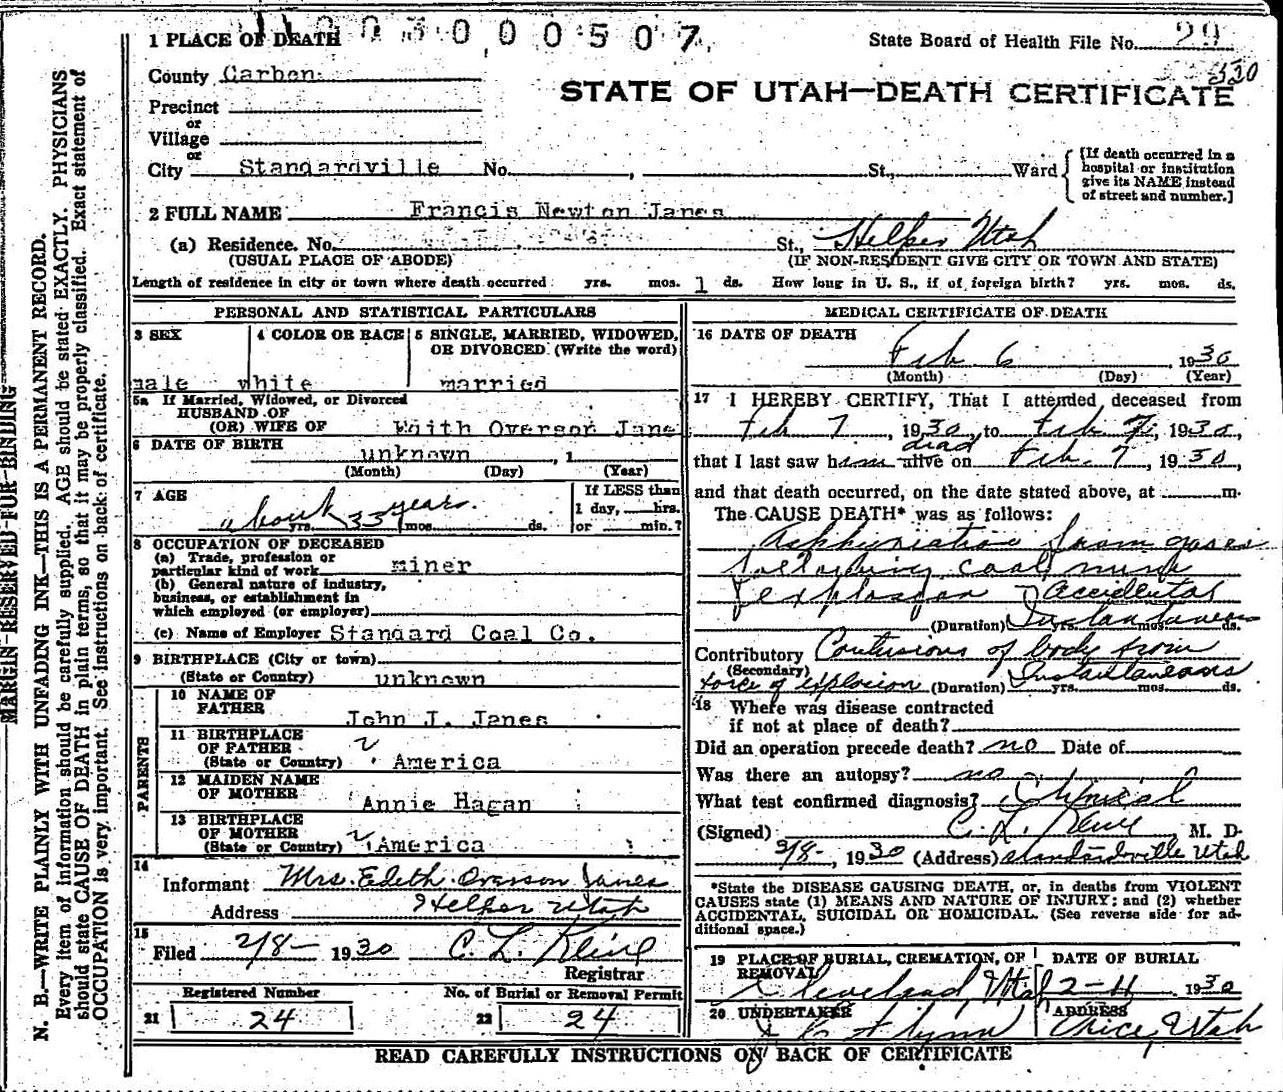 1 PLACE OF DEATH
0 0 0 5 0 7
State Board of Health File No. 29
330
County Carbon
STATE OF UTAH—DEATH CERTIFICATE
Precinct
or
Village
or
City Standardville No. , St., Ward
[If death occurred in a hospital or institution give its NAME instead of street and number.]
2 FULL NAME Francis Newton Janes
(a) Residence. No. St., Helper Utah
(USUAL PLACE OF ABODE) (IF NON-RESIDENT GIVE CITY OR TOWN AND STATE)
Length of residence in city or town where death occurred yrs. mos. 1 ds. How long in U. S., if of foreign birth? yrs. mos. ds.
PERSONAL AND STATISTICAL PARTICULARS
3 SEX 4 COLOR OR RACE 5 SINGLE, MARRIED, WIDOWED,
OR DIVORCED (Write the word)
male white married
5a If Married, Widowed, or Divorced
HUSBAND OF
(OR) WIFE OF Edith Overson Jane
6 DATE OF BIRTH unknown , 1
(Month) (Day) (Year)
7 AGE If LESS than
1 day, hrs.
about 33 years. yrs. mos. ds. or min.?
8 OCCUPATION OF DECEASED
(a) Trade, profession or
particular kind of work miner
(b) General nature of industry,
business, or establishment in
which employed (or employer)
(c) Name of Employer Standard Coal Co.
9 BIRTHPLACE (City or town)
(State or Country) unknown
PARENTS
10 NAME OF
FATHER John J. Janes
11 BIRTHPLACE
OF FATHER
(State or Country) America
12 MAIDEN NAME
OF MOTHER Annie Hagan
13 BIRTHPLACE
OF MOTHER
(State or Country) America
14
Informant Mrs. Edeth Overson Janes
Address Helper Utah
15
Filed 2/8- 1930 C. L. Kline
Registrar
Registered Number No. of Burial or Removal Permit
21 24 22 24
MEDICAL CERTIFICATE OF DEATH
16 DATE OF DEATH
Feb 6 1930
(Month) (Day) (Year)
17 I HEREBY CERTIFY, That I attended deceased from
Feb 7, 1930, to Feb 7, 1930,
dead
that I last saw him alive on Feb. 7, 1930,
and that death occurred, on the date stated above, at m.
The CAUSE DEATH* was as follows:
Asphyxiation from gases
following coal mine
explosion Accidental
(Duration) Instantaneous yrs. mos. ds.
Contributory Contusions of body from
(Secondary)
force of explosion (Duration) Instantaneous yrs. mos. ds.
18 Where was disease contracted
if not at place of death?
Did an operation precede death? no Date of
Was there an autopsy? no
What test confirmed diagnosis? Clinical
(Signed) C. L. Kline, M. D.
, 1930 (Address) Standardville Utah
*State the DISEASE CAUSING DEATH, or, in deaths from VIOLENT
CAUSES state (1) MEANS AND NATURE OF INJURY; and (2) whether
ACCIDENTAL, SUICIDAL OR HOMICIDAL. (See reverse side for ad-
ditional space.)
19 PLACE OF BURIAL, CREMATION, OR DATE OF BURIAL
REMOVAL
Cleveland Utah 2-11 1930
20 UNDERTAKER ADDRESS
Flynn Price, Utah
READ CAREFULLY INSTRUCTIONS ON BACK OF CERTIFICATE
MARGIN RESERVED FOR BINDING
N. B.—WRITE PLAINLY WITH UNFADING INK—THIS IS A PERMANENT RECORD.
Every item of information should be carefully supplied. AGE should be stated EXACTLY. PHYSICIANS
should state CAUSE OF DEATH in plain terms, so that it may be properly classified. Exact statement of
OCCUPATION is very important. See instructions on back of certificate.